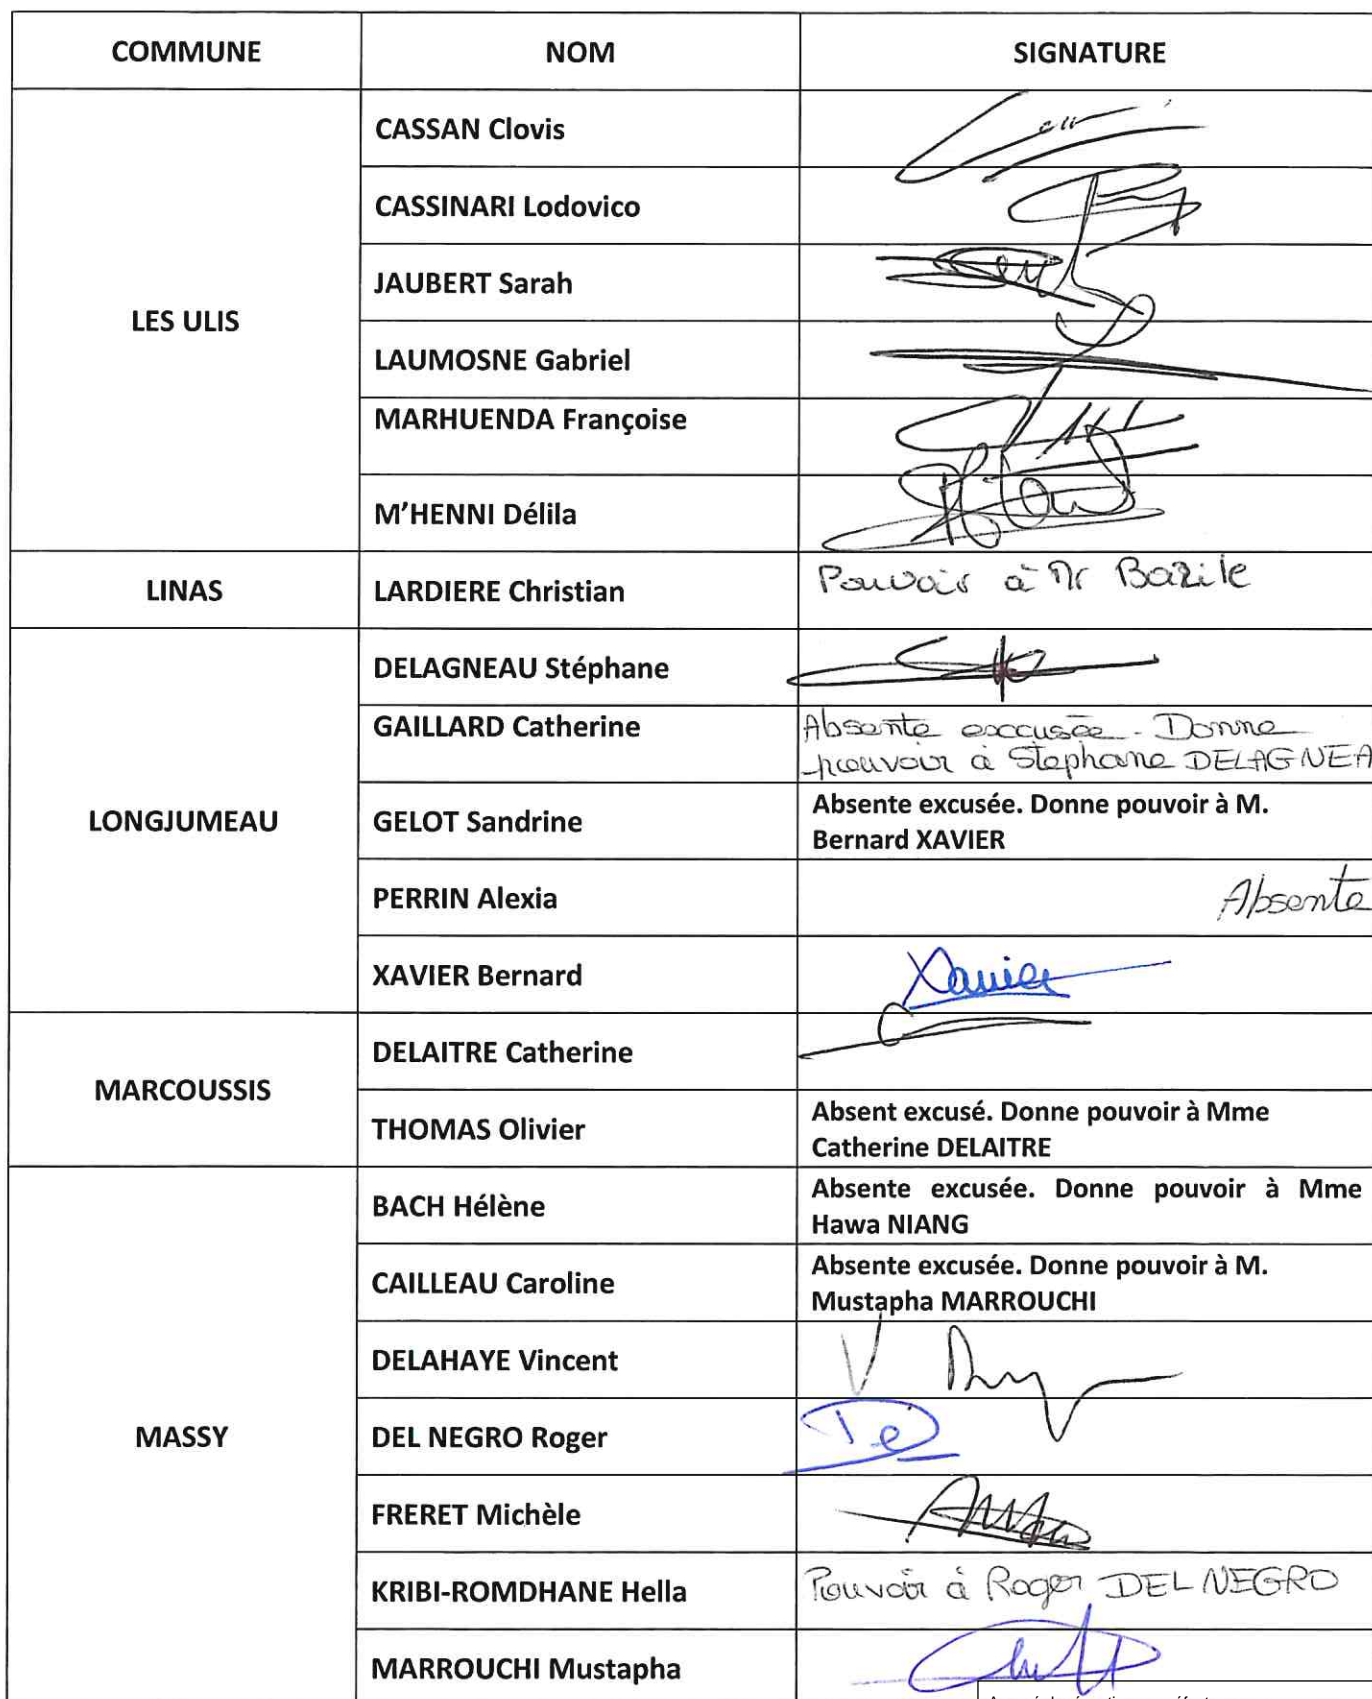 COMMUNE NOM SIGNATURE
LES ULIS
CASSAN Clovis
CASSINARI Lodovico
JAUBERT Sarah
LAUMOSNE Gabriel
MARHUENDA Françoise
M'HENNI Délila
LINAS LARDIERE Christian Pouvoir à Mr Bazile
LONGJUMEAU
DELAGNEAU Stéphane
GAILLARD Catherine Absente exccusée. Donne
pouvoir à Stephane DELAGNEA
GELOT Sandrine Absente excusée. Donne pouvoir à M.
Bernard XAVIER
PERRIN Alexia Absente
XAVIER Bernard Xavier
MARCOUSSIS
DELAITRE Catherine
THOMAS Olivier Absent excusé. Donne pouvoir à Mme
Catherine DELAITRE
MASSY
BACH Hélène Absente excusée. Donne pouvoir à Mme
Hawa NIANG
CAILLEAU Caroline Absente excusée. Donne pouvoir à M.
Mustapha MARROUCHI
DELAHAYE Vincent
DEL NEGRO Roger
FRERET Michèle
KRIBI-ROMDHANE Hella Pouvoir à Roger DEL NEGRO
MARROUCHI Mustapha